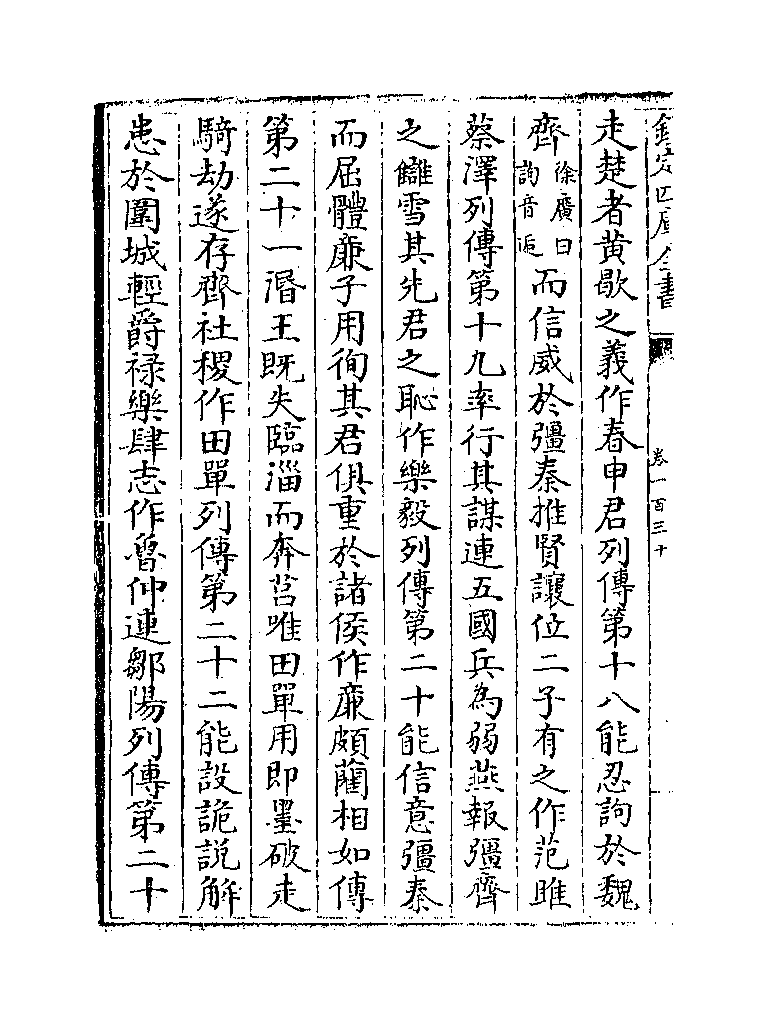 欽定四庫全書
卷一百三十
走楚者黄歇之義作春申君列傳第十八能忍訽於魏
齊徐廣曰訽音逅而信威於彊秦推賢讓位二子有之作范雎
蔡澤列傳第十九率行其謀連五國兵為弱燕報彊齊
之讎雪其先君之恥作樂毅列傳第二十能信意彊秦
而屈體廉子用徇其君俱重於諸侯作廉頗藺相如傳
第二十一湣王既失臨淄而奔莒唯田單用即墨破走
騎劫遂存齊社稷作田單列傳第二十二能設詭說解
患於圍城輕爵禄樂肆志作魯仲連鄒陽列傳第二十